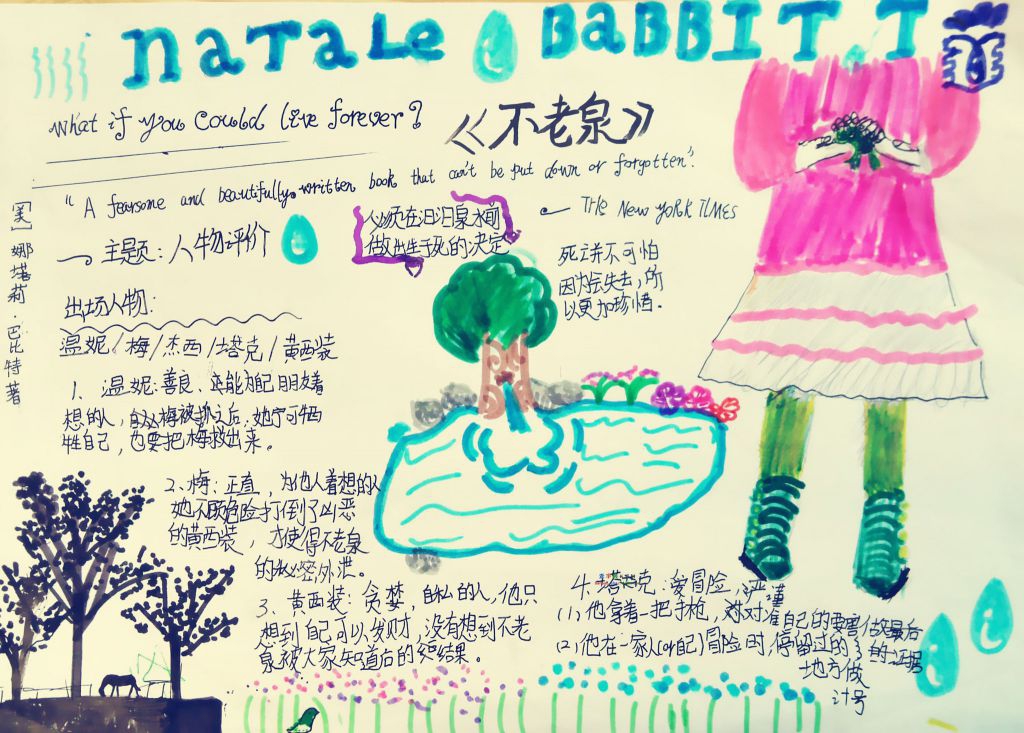 NATALE BABBITT
What if you could live forever?
《不老泉》
"A fearsome and beautifully written book that can't be put down or forgotten".
— THE NEW YORK TIMES
[美]娜塔莉·巴比特著
主题:人物评价
必须在汩汩泉水前
做出生于死的决定
死亡并不可怕
因为会失去,所
以更加珍惜。
出场人物:
温妮/梅/杰西/塔克/黄西装
1、温妮:善良、还能为自己朋友着
想的人,自从梅被抓之后,她宁可牺
牲自己,也要把梅救出来。
2、梅:正直,为他人着想的人
她不顾危险打倒了凶恶
的黄西装,才使得不老泉
的秘密外泄。
3、黄西装:贪婪,自私的人,他只
想到自己可以发财,没有想到不老
泉被大家知道后的结果。
4、塔克:爱冒险,严谨
(1),他拿着一把手枪,对准自己的要害做最后
(2),他在一家人(or自己)冒险时,停留过的
地方做
记号